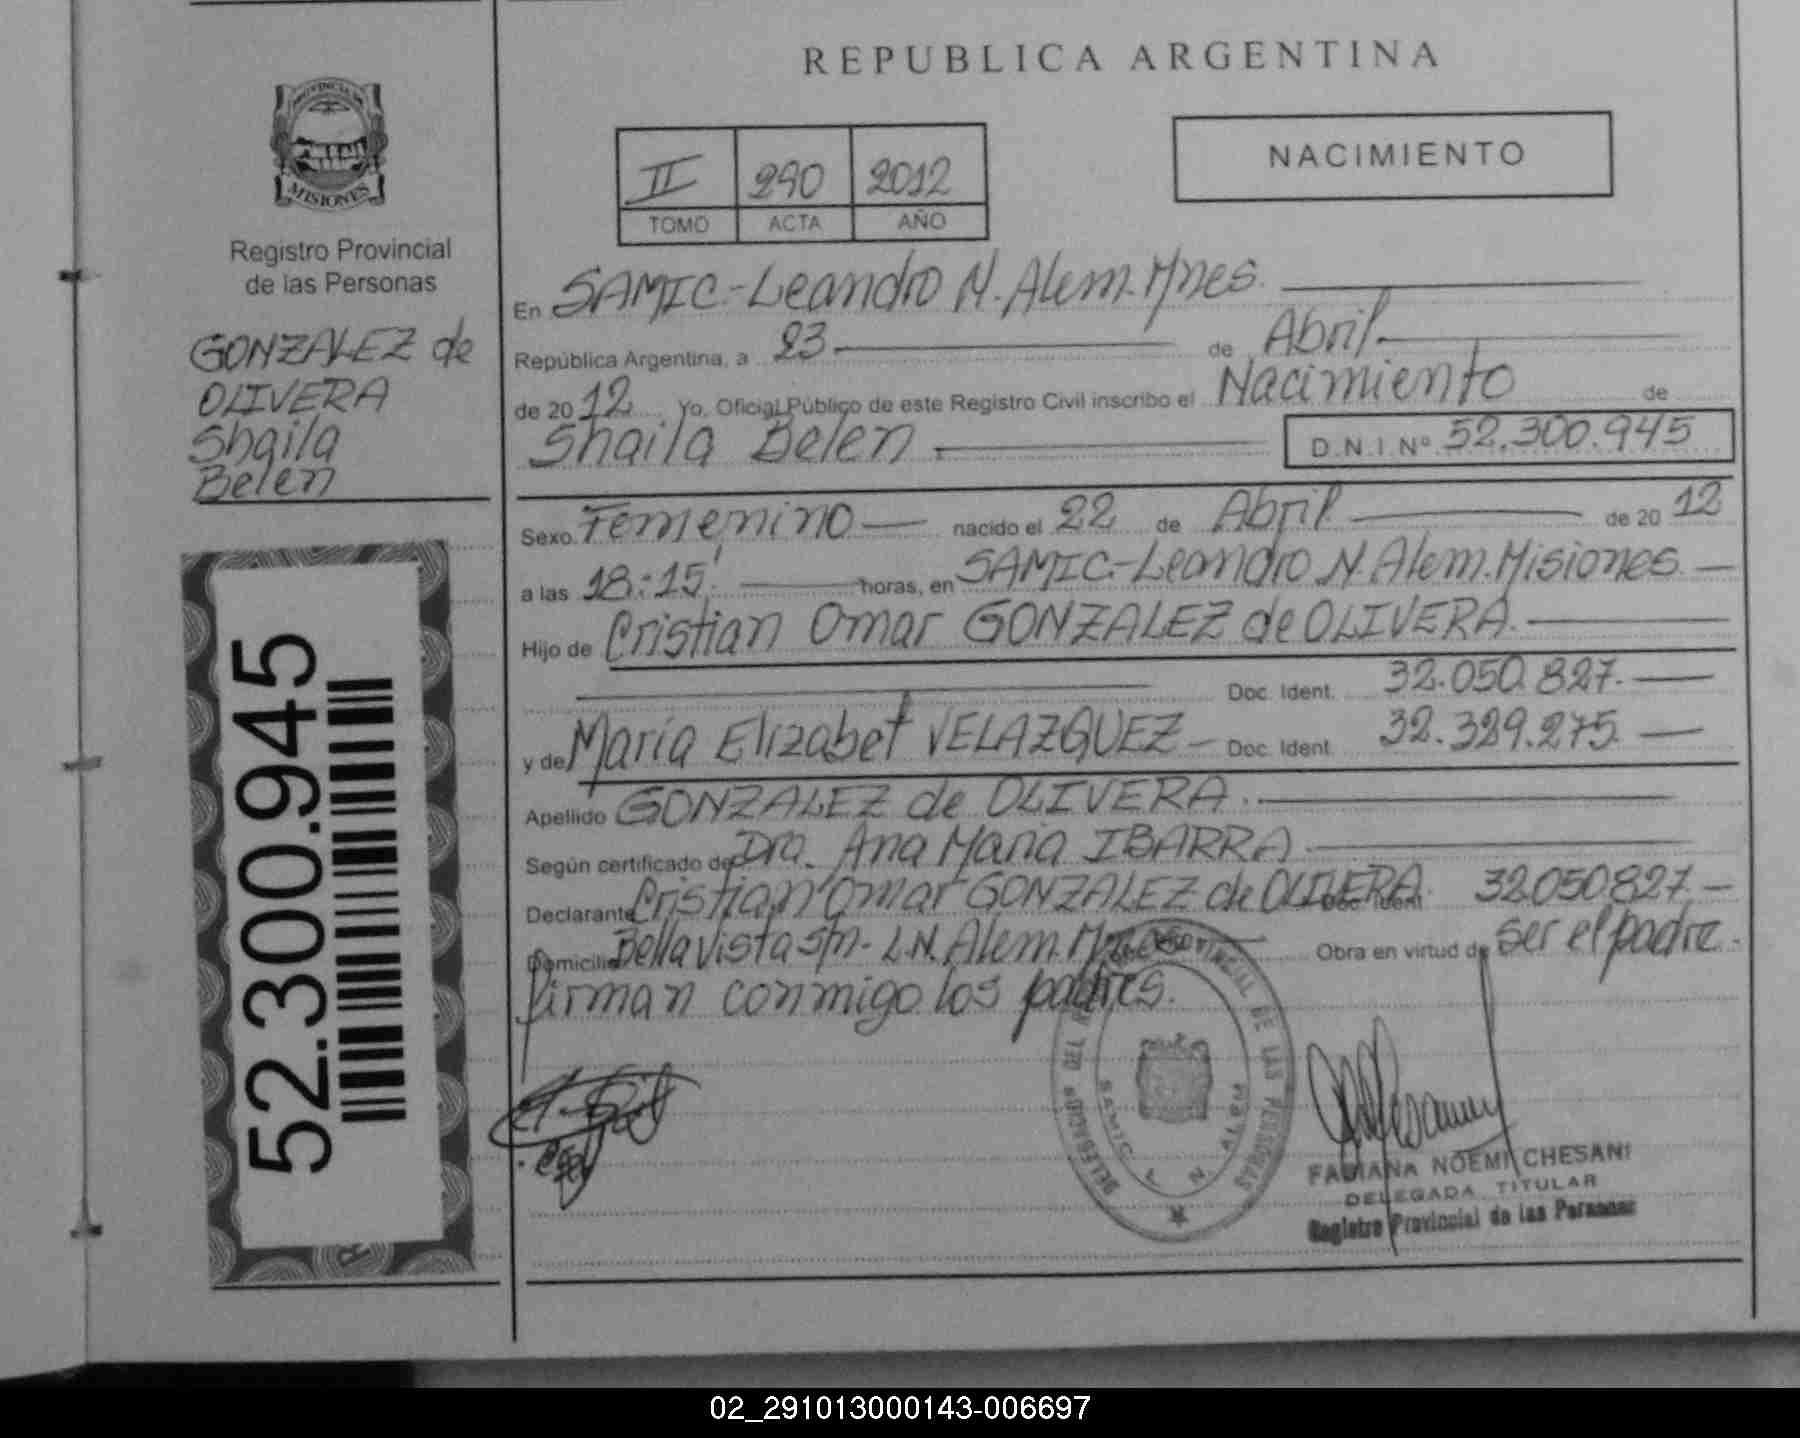 REPUBLICA ARGENTINA
PROVINCIA DE
MISIONES
Registro Provincial
de las Personas
GONZALEZ de
OLIVERA
Shaila
Belen
52.300.945
II 290 2012
TOMO ACTA AÑO
NACIMIENTO
En SAMIC-Leandro N. Alem. Mnes.
República Argentina, a 23 de Abril.
de 2012 Yo, Oficial Público de este Registro Civil inscribo el Nacimiento de
Shaila Belen D.N.I.Nº 52.300.945
Sexo Femenino nacido el 22 de Abril de 2012
a las 18:15' horas, en SAMIC-Leandro N. Alem. Misiones.
Hijo de Cristian Omar GONZALEZ de OLIVERA.
Doc. Ident. 32.050.827.
y de María Elizabet VELAZQUEZ Doc. Ident. 32.329.275.
Apellido GONZALEZ de OLIVERA.
Según certificado de Dra. Ana Maria IBARRA
Declarante Cristian Omar GONZALEZ de OLIVERA. Doc. Ident. 32.050.827.
Domicilio Bella Vista s/n- L.N. Alem. Obra en virtud de ser el padre.
firman conmigo los padres.
DEL REGISTRO PROVINCIAL DE LAS PERSONAS
SAMIC L. N. ALEM
FABIANA NOEMI CHESANI
DELEGADA TITULAR
Registro Provincial de las Personas
02_291013000143-006697